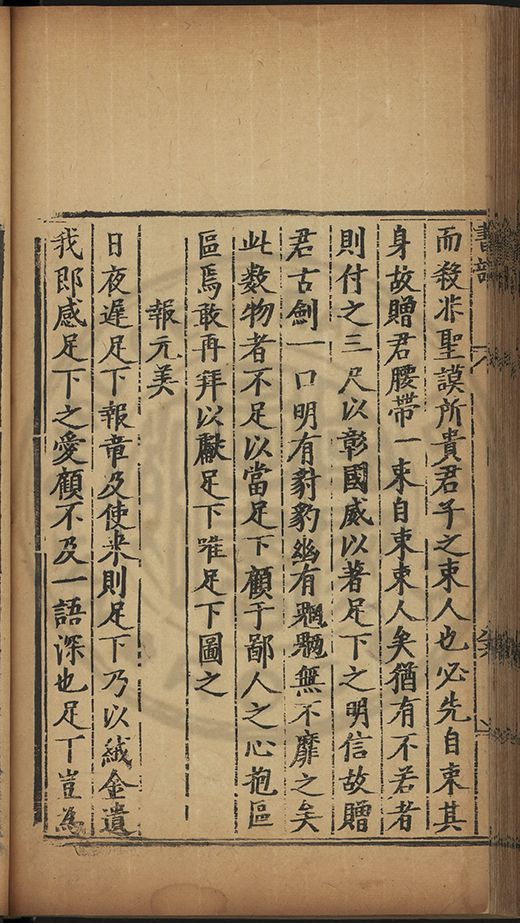 而殺非聖謨所貴君子之束人也必先自束其
身故贈君腰帶一束自束束人矣猶有不若者
則付之三尺以彰國威以著足下之明信故贈
君古劍一口明有豺豹幽有魍魎無不靡之矣
此数物者不足以當足下顧于鄙人之心抱區
區焉敢再拜以獻足下唯足下圖之
報元美
日夜遲足下報章及使來則足下乃以緘金遺
我即感足下之愛顧不及一語深也足下豈為